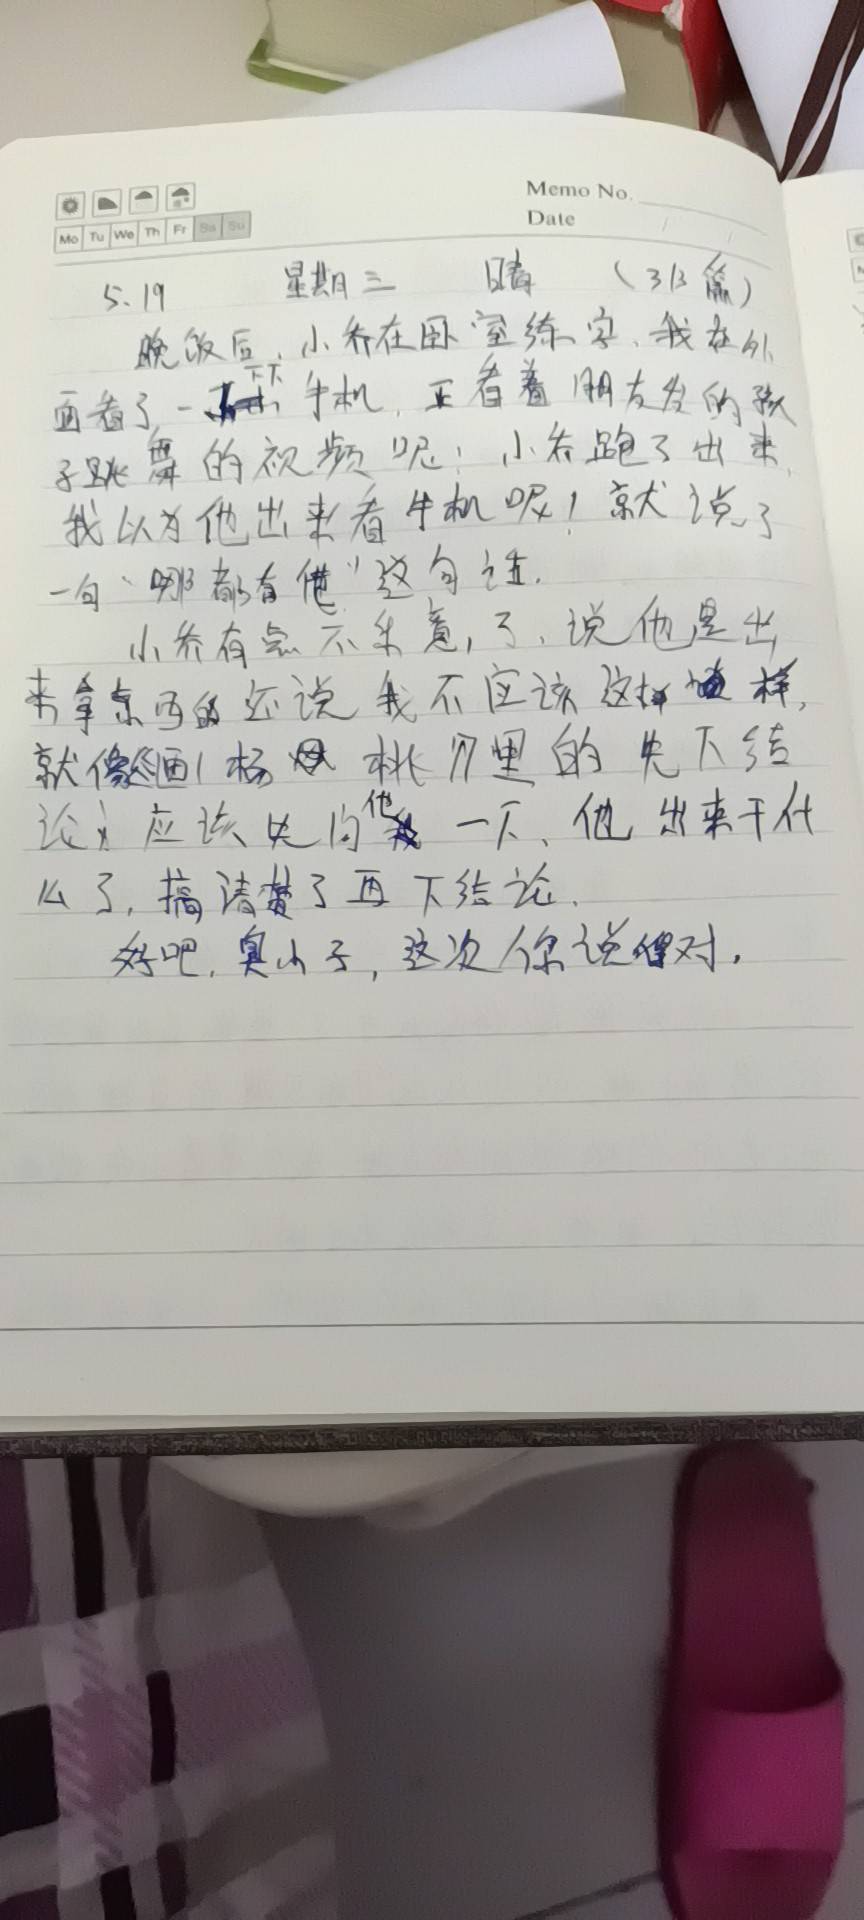 Memo No.
Mo Tu We Th Fr Sa Su
Date
5.19 星期三 晴 (313篇)
晚饭后,小乔在卧室练字,我在外
面看了一下手机,正看着朋友发的孩
子跳舞的视频呢!小乔跑了出来,
我以为他出来看手机呢!就说了
一句“哪都有他”这句话.
小乔有点不乐意,了,说他是出
来拿东西的还说我不应该这样,
就像《画杨桃》里的先下结
论》应该先问他一下,他出来干什
么了,搞清楚了再下结论.
好吧,臭小子,这次你说得对.